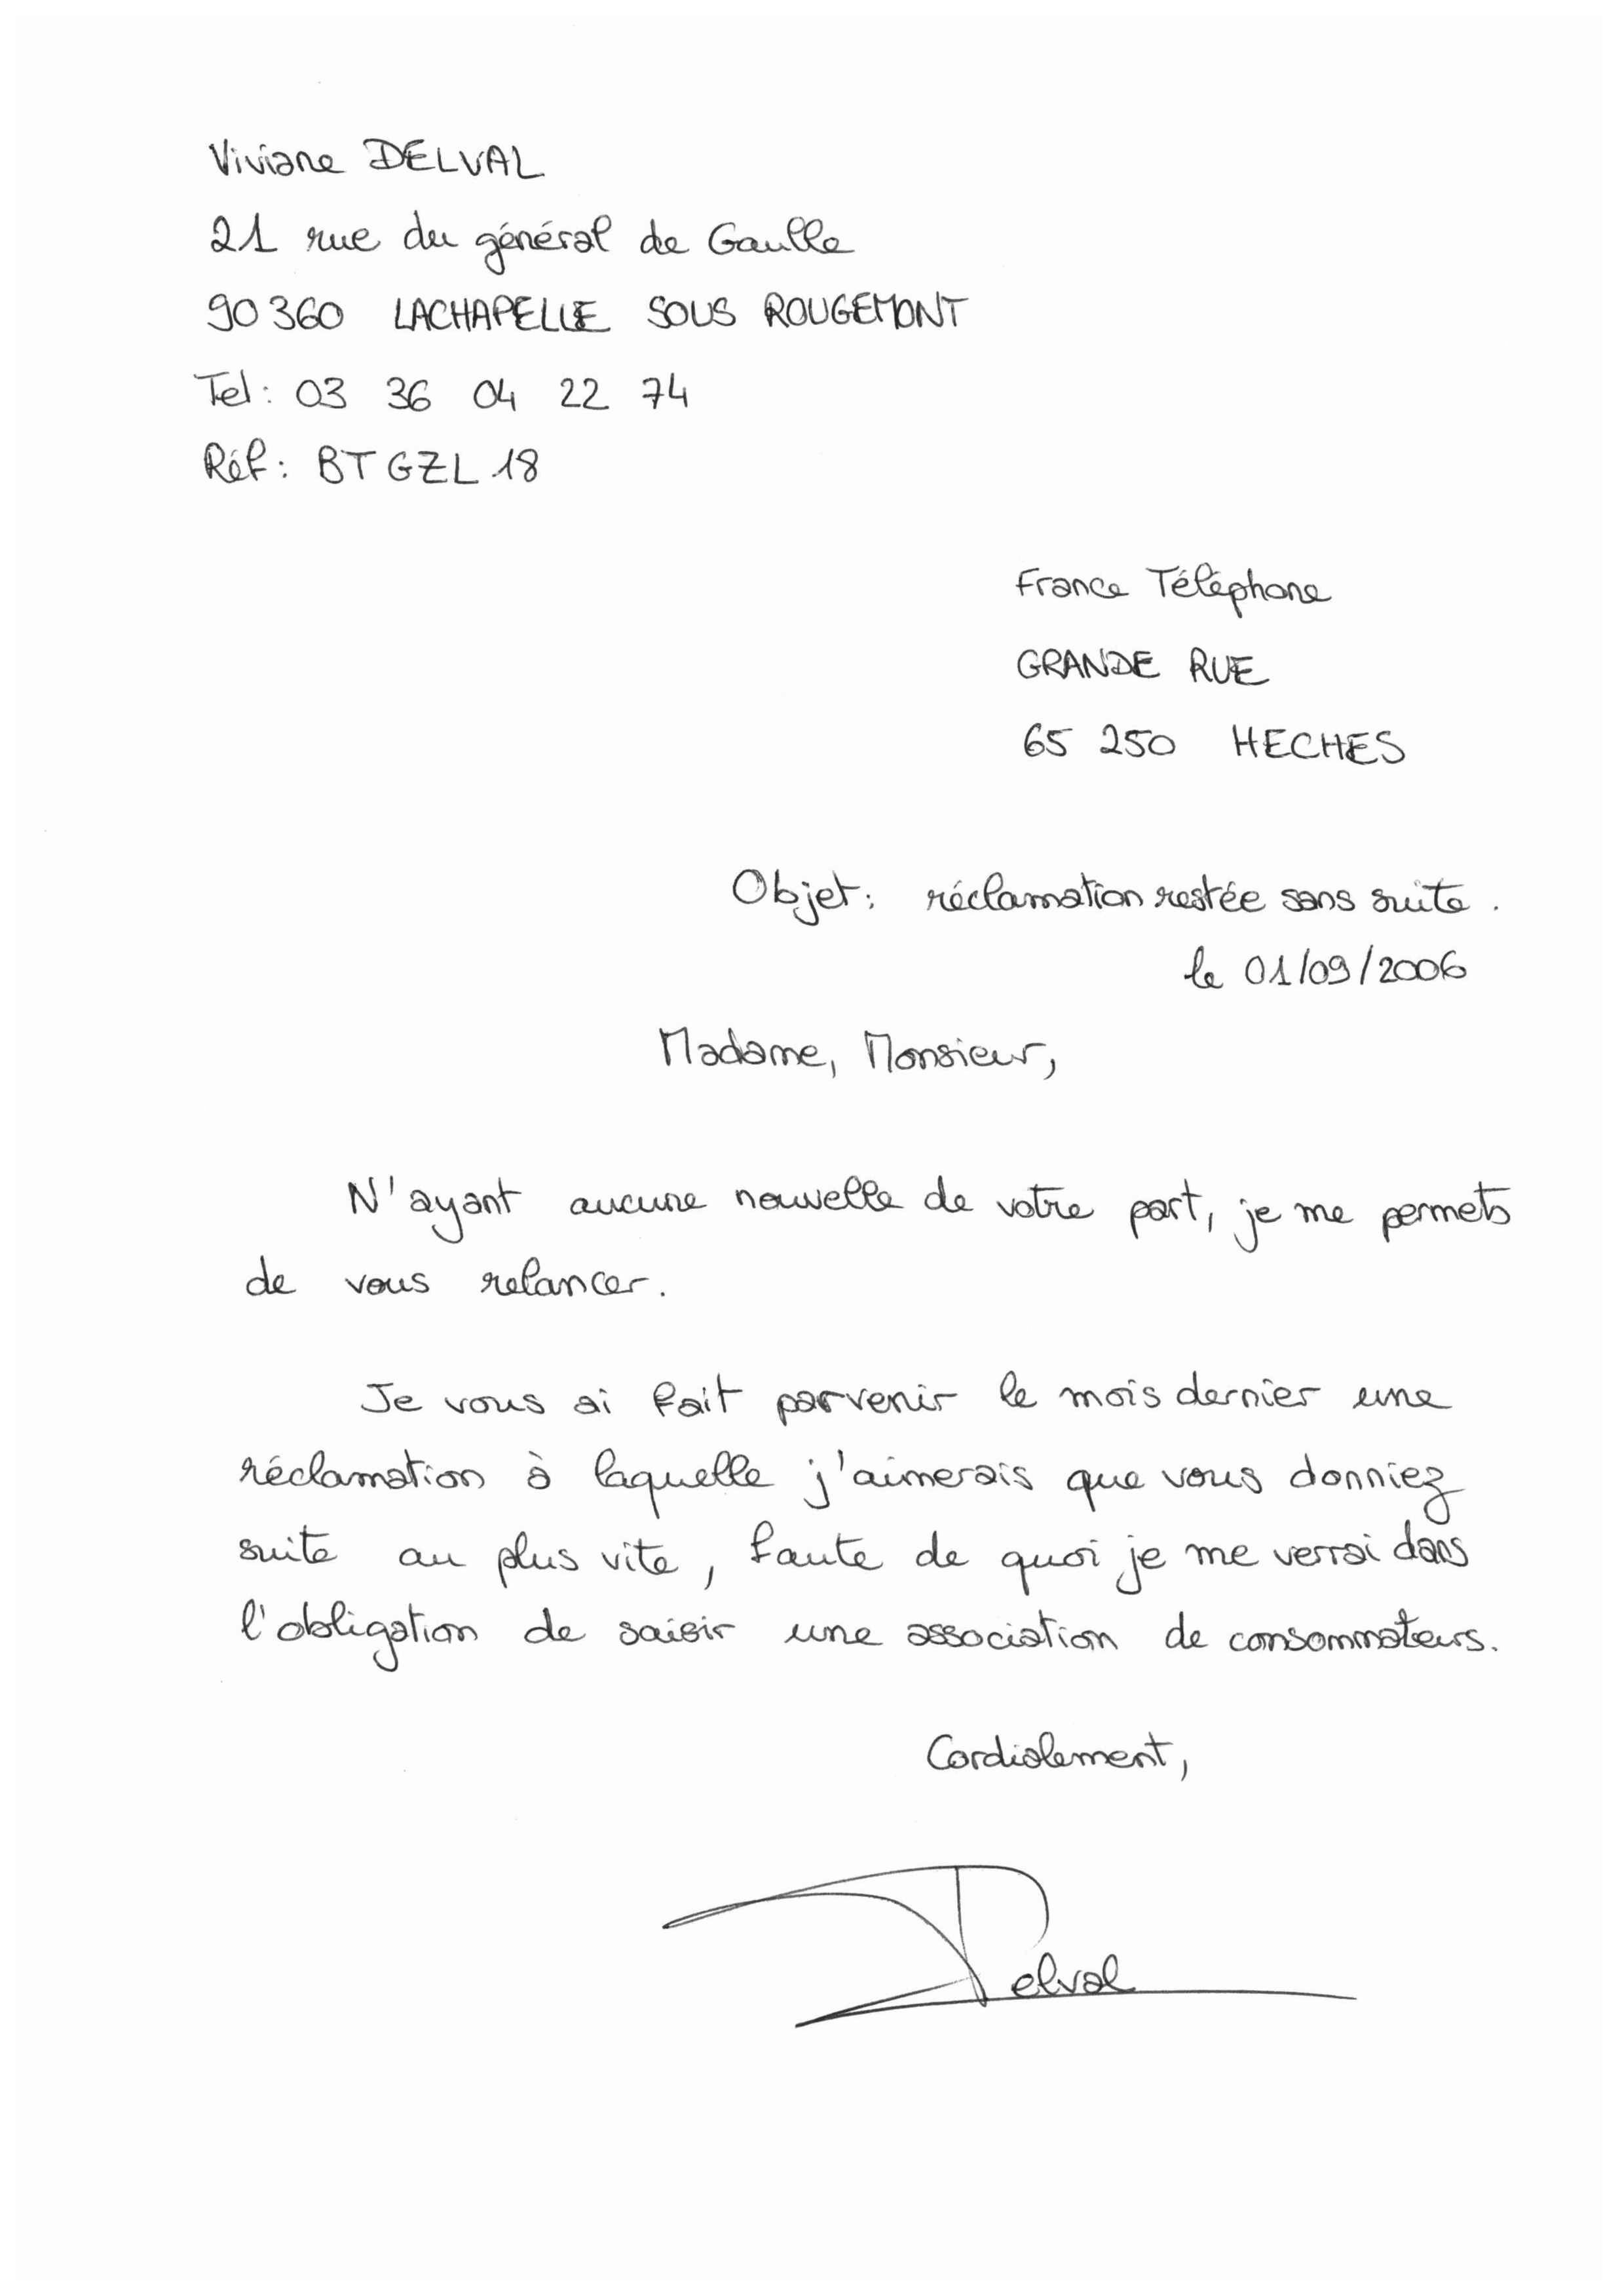 Viviane DELVAL
21 rue du général de Gaulle
90360 LACHAPELLE SOUS ROUGEMONT
Tel: 03 36 04 22 74
Réf: BTGZL18
France Téléphone
GRANDE RUE
65 250 HECHES
Objet: réclamation restée sans suite.
le 01/09/2006
Madame, Monsieur,
N'ayant aucune nouvelle de votre part, je me permets
de vous relancer.
Je vous ai fait parvenir le mois dernier une
réclamation à laquelle j'aimerais que vous donniez
suite au plus vite, faute de quoi je me verrai dans
l'obligation de saisir une association de consommateurs.
Cordialement,
Delval